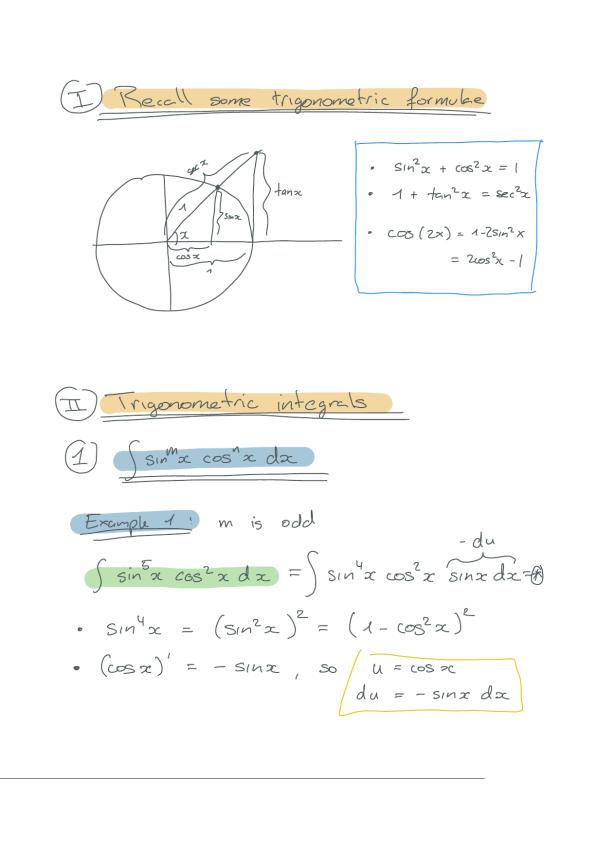 I Recall some trigonometric formulae
sec x
1
sin x
tan x
x
cos x
1
• sin²x + cos²x = 1
• 1 + tan²x = sec²x
• cos(2x) = 1-2sin²x
= 2cos²x - 1
II Trigonometric integrals
1 ∫ sinᵐx cosⁿx dx
Example 1: m is odd
-du
∫ sin⁵x cos²x dx = ∫ sin⁴x cos²x sinx dx = ⊛
• sin⁴x = (sin²x)² = (1 - cos²x)²
• (cos x)' = - sinx, so u = cos x
du = - sinx dx